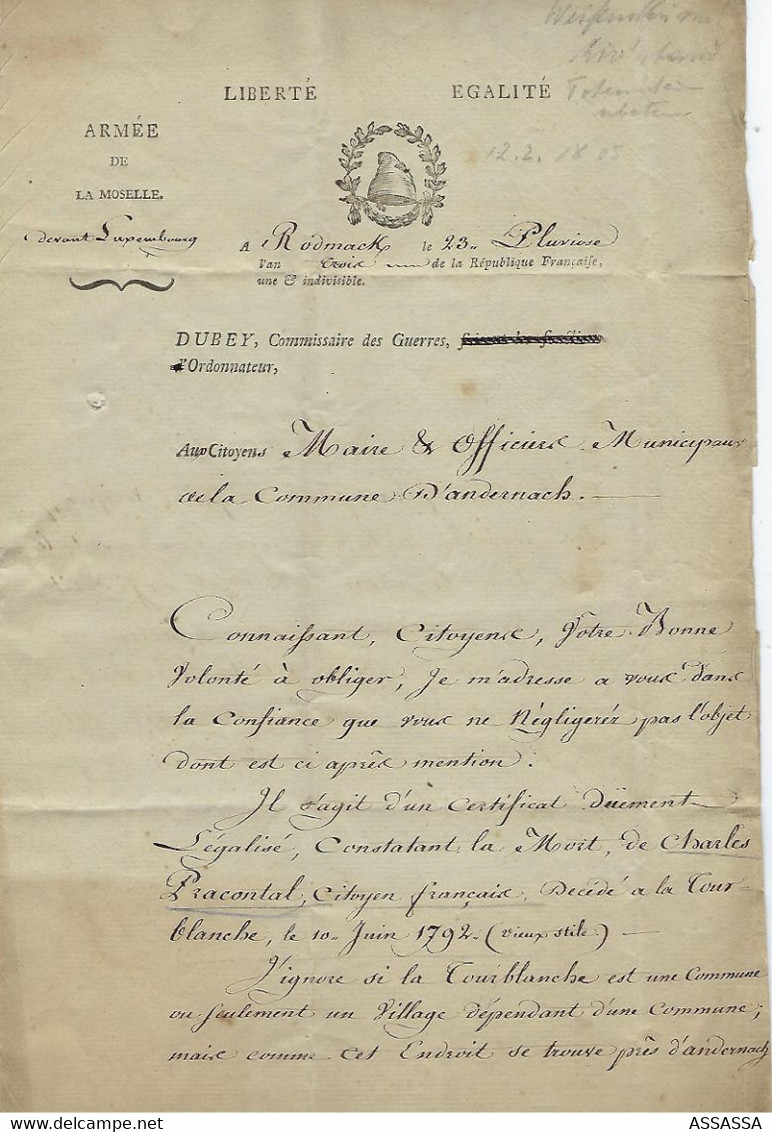 LIBERTÉ EGALITÉ
ARMÉE
DE
LA MOSELLE.
devant Luxembourg
12.2. 18
A Rodmack le 23 Pluviose
l'an trois de la République Françaiſe,
une & indivisible.
DUBEY, Commissaire des Guerres,
d'Ordonnateur,
Aux Citoyens Maire & Officiers Municipaux
de la Commune D'andernach.
Connaissant, Citoyens, Votre Bonne
Volonté à obliger, Je m'adresse a vous dans
la Confiance que vous ne Négligerez pas l'objet
dont est ci après mention.
Il s'agit d'un Certificat Düement
Légalisé, Constatant la Mort, de Charles
Pracontal, Citoyen français, Decédé a la Tour-
blanche, le 10 Juin 1792. (vieux stile)
J'ignore si la Tourblanche est une Commune
ou seulement un Village dépendant d'une Commune;
mais comme cet Endroit se trouve près d'andernach
ASSASSA